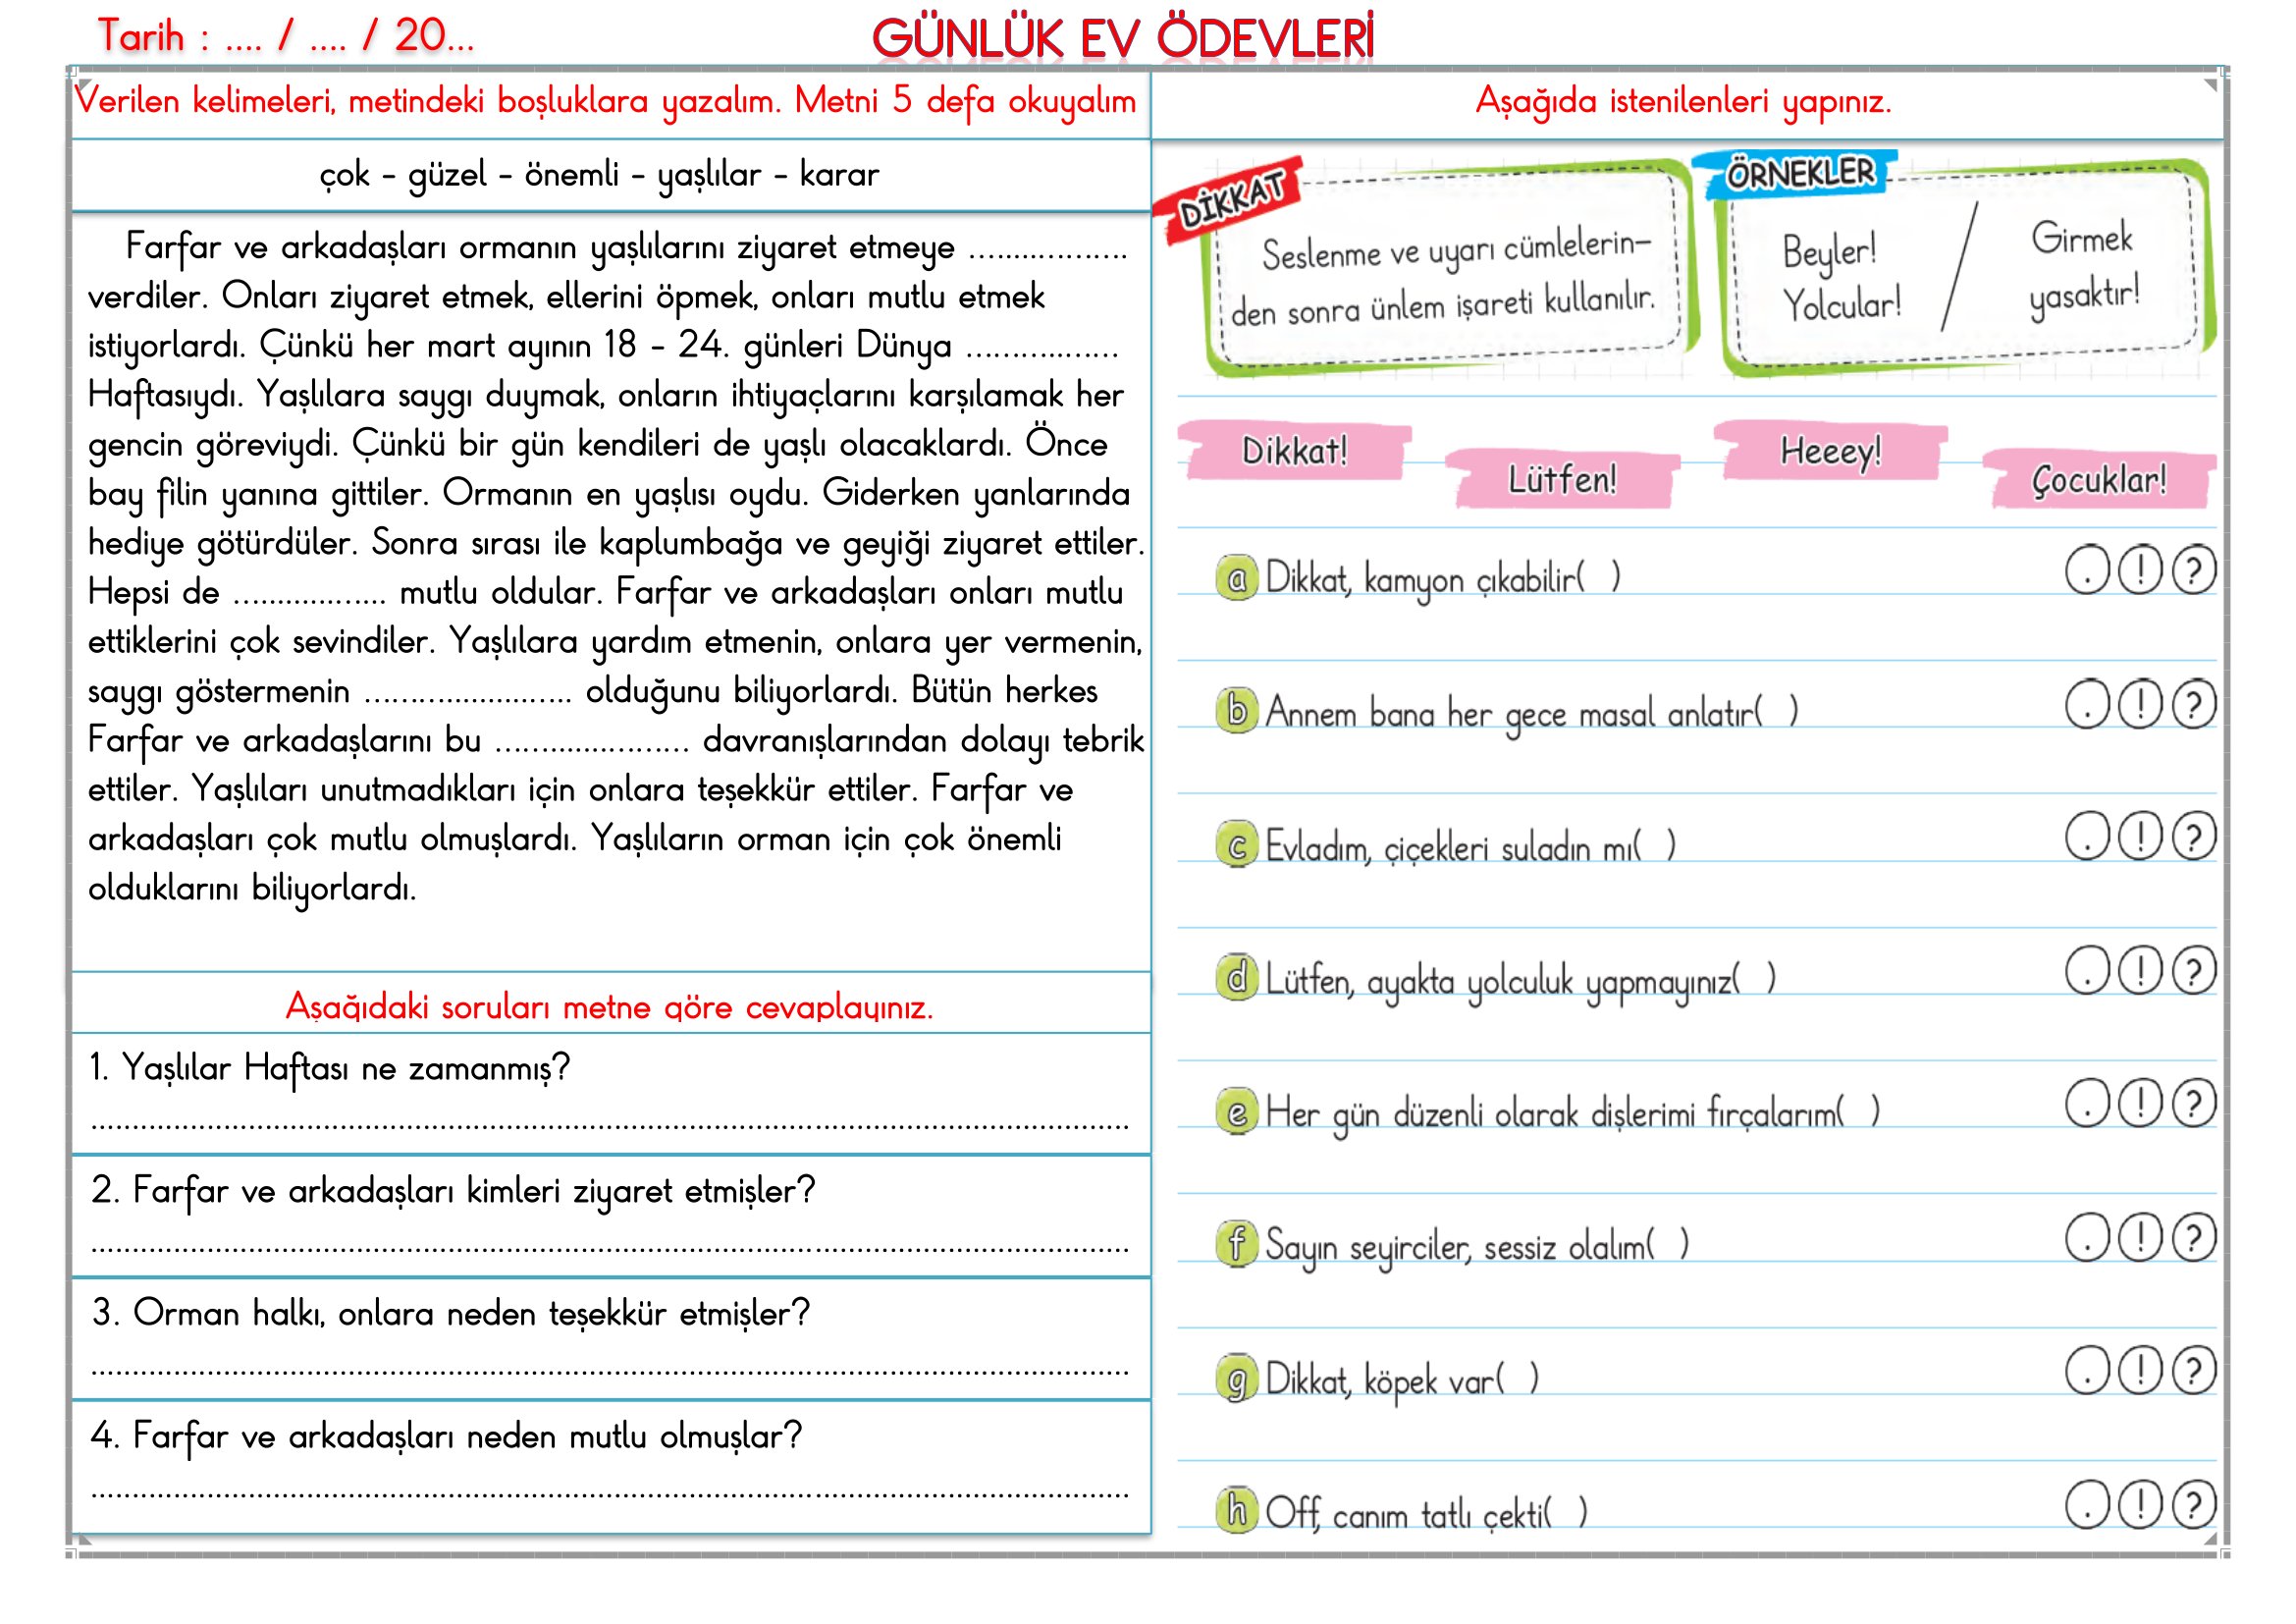 Tarih : .... / .... / 20...
GÜNLÜK EV ÖDEVLERİ
Verilen kelimeleri, metindeki boşluklara yazalım. Metni 5 defa okuyalım
çok - güzel - önemli - yaşlılar - karar
Farfar ve arkadaşları ormanın yaşlılarını ziyaret etmeye ..................
verdiler. Onları ziyaret etmek, ellerini öpmek, onları mutlu etmek
istiyorlardı. Çünkü her mart ayının 18 - 24. günleri Dünya .................
Haftasıydı. Yaşlılara saygı duymak, onların ihtiyaçlarını karşılamak her
gencin göreviydi. Çünkü bir gün kendileri de yaşlı olacaklardı. Önce
bay filin yanına gittiler. Ormanın en yaşlısı oydu. Giderken yanlarında
hediye götürdüler. Sonra sırası ile kaplumbağa ve geyiği ziyaret ettiler.
Hepsi de ................. mutlu oldular. Farfar ve arkadaşları onları mutlu
ettiklerini çok sevindiler. Yaşlılara yardım etmenin, onlara yer vermenin,
saygı göstermenin ....................... olduğunu biliyorlardı. Bütün herkes
Farfar ve arkadaşlarını bu ..................... davranışlarından dolayı tebrik
ettiler. Yaşlıları unutmadıkları için onlara teşekkür ettiler. Farfar ve
arkadaşları çok mutlu olmuşlardı. Yaşlıların orman için çok önemli
olduklarını biliyorlardı.
Aşağıdaki soruları metne göre cevaplayınız.
1. Yaşlılar Haftası ne zamanmış?
................................................................................
2. Farfar ve arkadaşları kimleri ziyaret etmişler?
................................................................................
3. Orman halkı, onlara neden teşekkür etmişler?
................................................................................
4. Farfar ve arkadaşları neden mutlu olmuşlar?
................................................................................
Aşağıda istenilenleri yapınız.
DİKKAT
Seslenme ve uyarı cümlelerin-
den sonra ünlem işareti kullanılır.
ÖRNEKLER
Beyler!
Yolcular!
/
Girmek
yasaktır!
Dikkat!
Lütfen!
Heeey!
Çocuklar!
a Dikkat, kamyon çıkabilir( ) . ! ?
b Annem bana her gece masal anlatır( ) . ! ?
c Evladım, çiçekleri suladın mı( ) . ! ?
d Lütfen, ayakta yolculuk yapmayınız( ) . ! ?
e Her gün düzenli olarak dişlerimi fırçalarım( ) . ! ?
f Sayın seyirciler, sessiz olalım( ) . ! ?
g Dikkat, köpek var( ) . ! ?
h Off, canım tatlı çekti( ) . ! ?